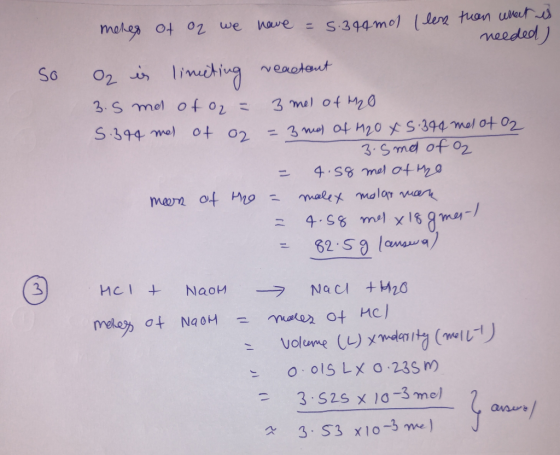 moles of O2 we have = 5.344 mol (less than what is needed)
So O2 is limiting reactant
3.5 mol of O2 = 3 mol of H2O
5.344 mol of O2 = 3 mol of H2O x 5.344 mol of O2
3.5 mol of O2
= 4.58 mol of H2O
mass of H2O = moles x molar mass
= 4.58 mol x 18 g mol-1
= 82.5 g (answer)
3 HCl + NaOH → NaCl + H2O
moles of NaOH = moles of HCl
= Volume (L) x molarity (mol L-1)
= 0.015 L x 0.235 M
= 3.525 x 10-3 mol
≈ 3.53 x 10-3 mol } answer